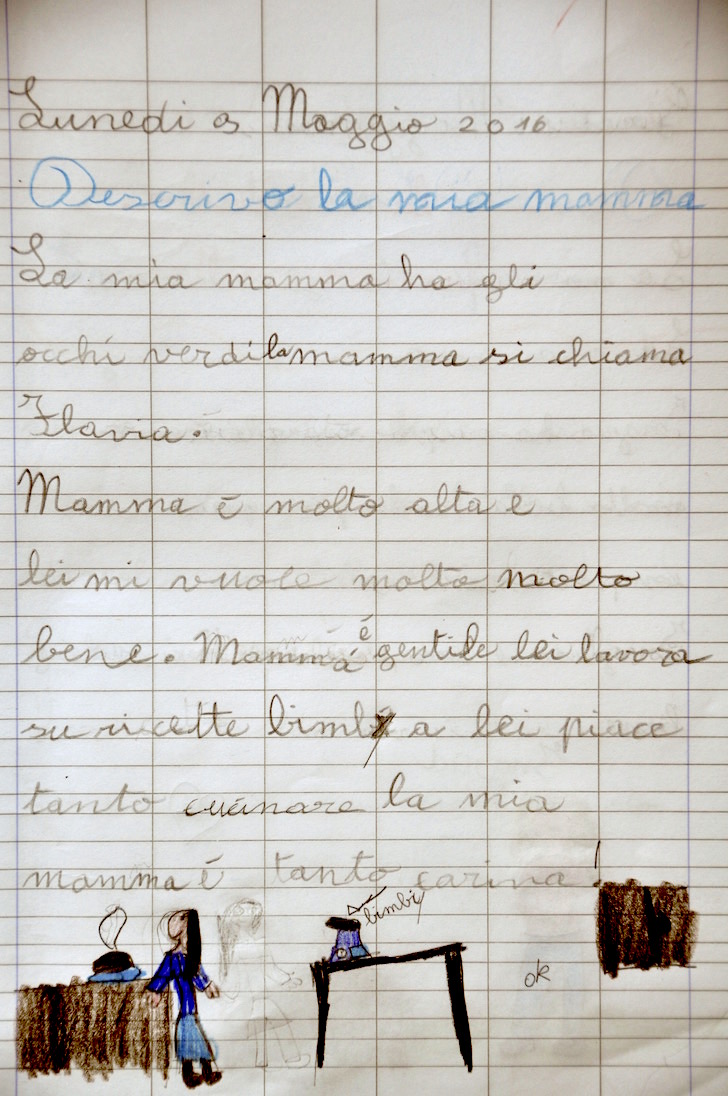 Lunedì 9 Maggio 2016
Descrivo la mia mamma
La mia mamma ha gli
occhi verdi la mamma si chiama
Flavia.
Mamma è molto alta e
lei mi vuole molto molto
bene. Mamma è gentile lei lavora
su ricette bimby a lei piace
tanto cucinare la mia
mamma è tanto carina!
bimby
ok